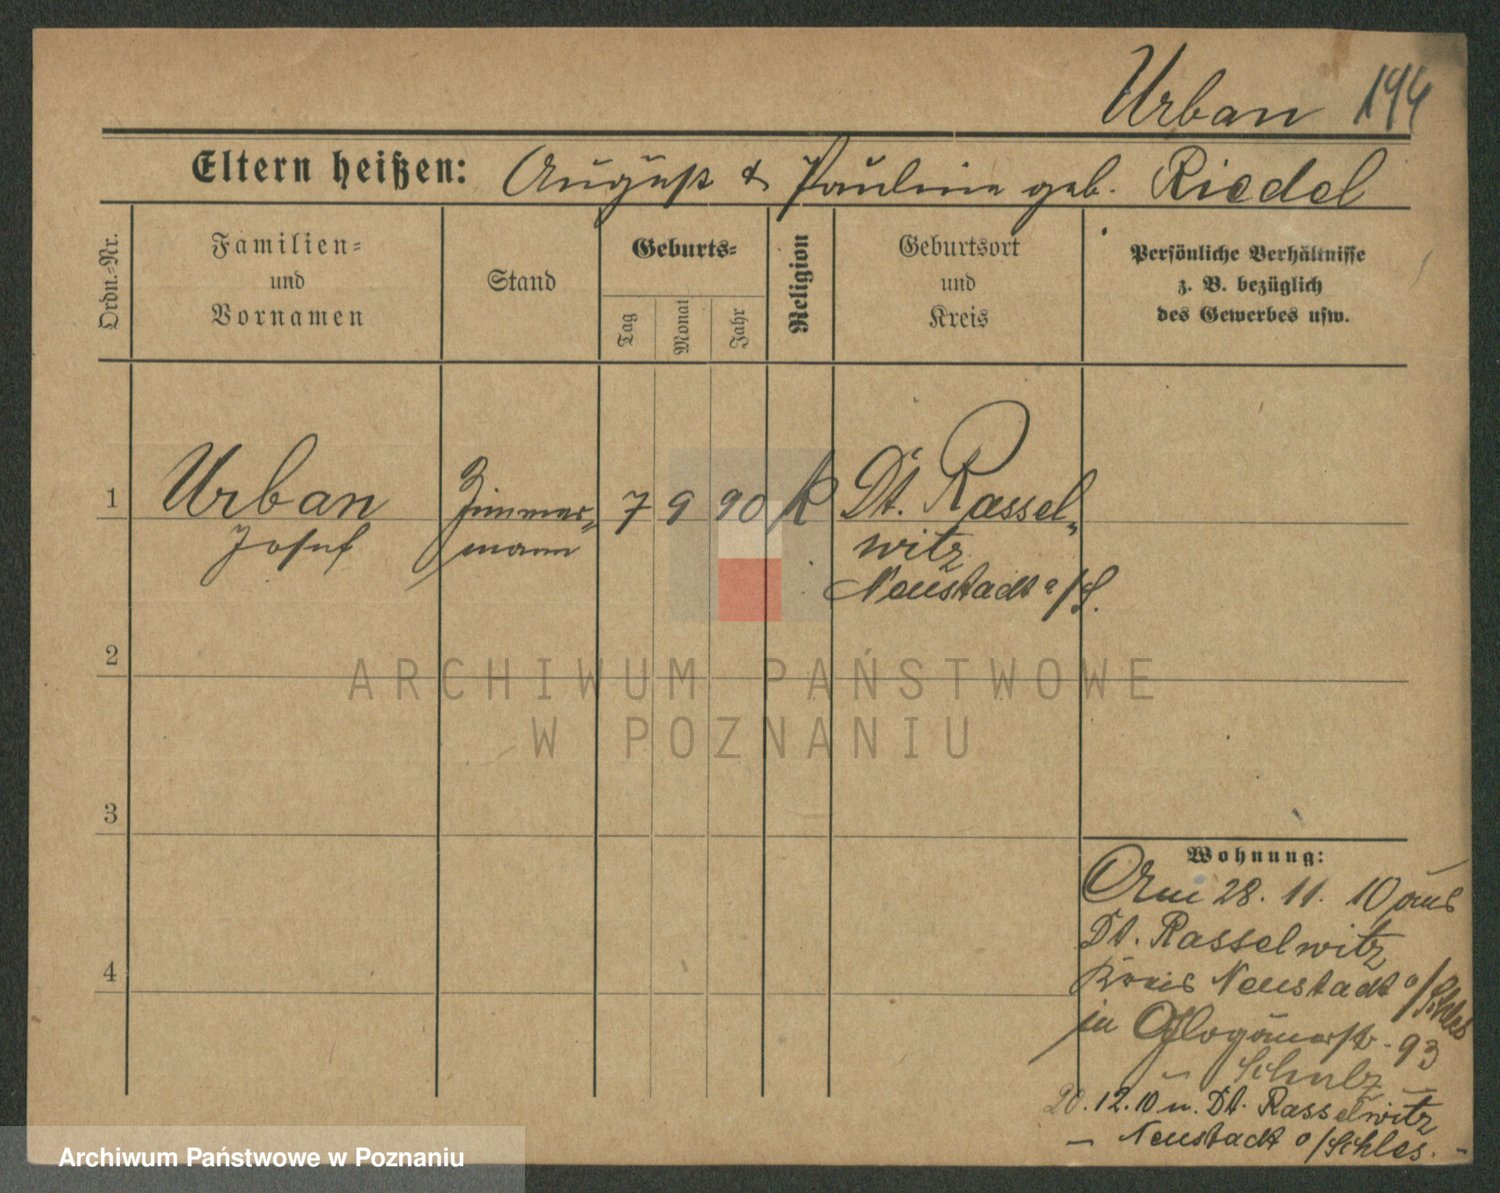 Urban 144
Eltern heißen: August & Pauline geb. Riedel
Ordn.-Nr.
Familien-
und
Vornamen
Stand
Geburts-
Tag
Monat
Jahr
Religion
Geburtsort
und
Kreis
Persönliche Verhältnisse
z. B. bezüglich
des Gewerbes usw.
1 Urban Zimmer- 7 9 90 K Dt. Rassel-
Josef mann witz
Neustadt o/S.
2
3
4
Wohnung:
Am 28. 11. 10 aus
Dt. Rasselwitz
Kreis Neustadt o/Schles
in Glogauerstr. 93
Schulz
20.12.10 n. Dt. Rasselwitz
- Neustadt o/Schles. -
ARCHIWUM PAŃSTWOWE
W POZNANIU
Archiwum Państwowe w Poznaniu